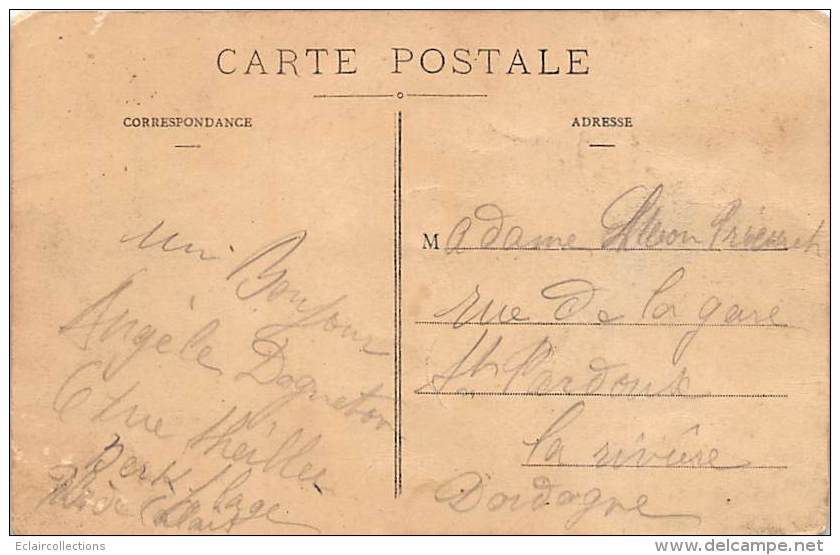 CARTE POSTALE
CORRESPONDANCE
ADRESSE
Un Bonjour
Angèle Dagneton
6 rue
Berk Plage
Pas de Calais
Madame Léon
rue de la gare
St Pardoux
la rivière
Dordogne
Eclaircollections
www.delcampe.net